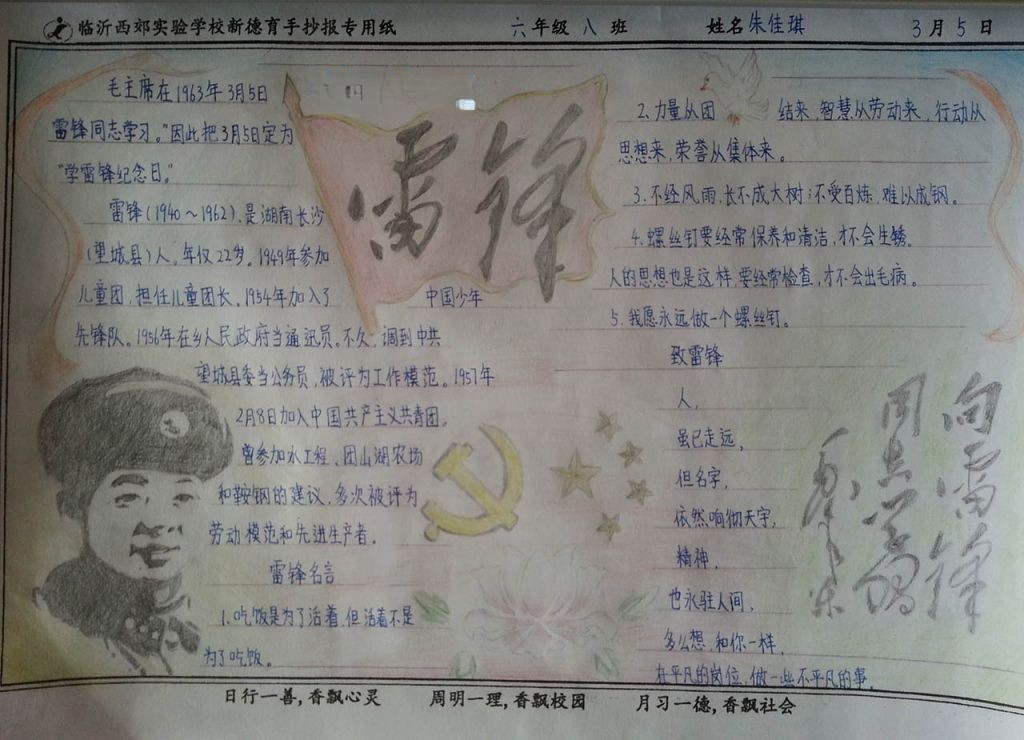 临沂西郊实验学校新德育手抄报专用纸 六年级 八 班 姓名 朱佳琪 3月5日
毛主席在1963年3月5日
雷锋同志学习。"因此把3月5日定为
"学雷锋纪念日。"
雷锋(1940～1962),是湖南长沙
(望城县)人,年仅22岁。1949年参加
儿童团,担任儿童团长。1954年加入了中国少年
先锋队。1956年在乡人民政府当通迅员。不久,调到中共
望城县委当公务员,被评为工作模范。1957年
2月8日加入中国共产主义共青团。
曾参加水工程、团山湖农场
和鞍钢的建议,多次被评为
劳动模范和先进生产者。
雷锋名言
1.吃饭是为了活着,但活着不是
为了吃饭。
雷锋
2.力量从团结来,智慧从劳动来,行动从
思想来,荣誉从集体来。
3.不经风雨,长不成大树;不受百炼,难以成钢。
4.螺丝钉要经常保养和清洁,才不会生锈。
人的思想也是这样,要经常检查,才不会出毛病。
5.我愿永远做一个螺丝钉。
致雷锋
人,
虽已走远,
但名字,
依然响彻天宇,
精神,
也永驻人间,
多么想,和你一样,
在平凡的岗位,做一些不平凡的事。
向雷锋
同志学习
毛泽东
日行一善,香飘心灵 周明一理,香飘校园 月习一德,香飘社会